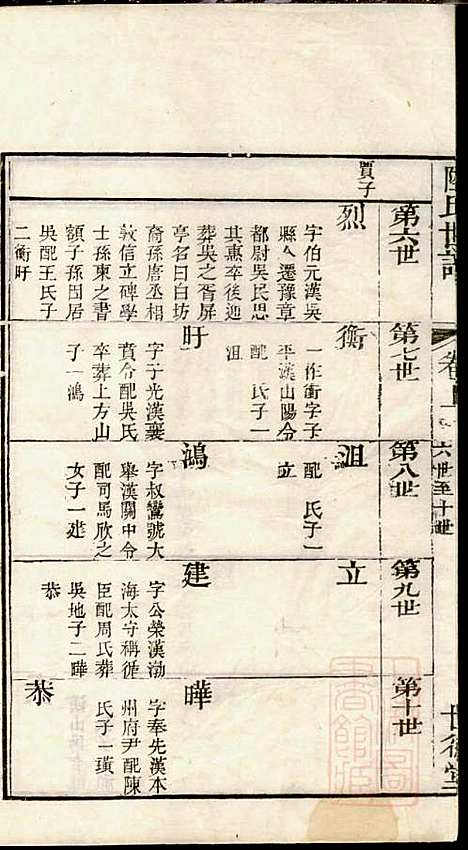 陸氏世譜
卷上
六世至十世
世德堂
第六世
賈子
烈
字伯元漢吳
縣人遷豫章
都尉吳民思
其惠卒後迎
葬吳之胥屏
亭名曰白坊
裔孫唐丞相
敦信立碑學
士孫東之書
額子孫因居
吳配王氏子
二衡旴
第七世
衡
一作衝字子
平漢山陽令
配 氏子一
沮
旴
字子光漢襄
賁令配吳氏
卒葬上方山
子一鴻
第八世
沮
配 氏子一
立
鴻
字叔鸞號大
舉漢關中令
配司馬欣之
女子一建
第九世
立
建
字公榮漢渤
海太守稱循
臣配周氏葬
吳地子二曄
恭
第十世
曄
字奉先漢本
州府尹配陳
氏子一璜
恭